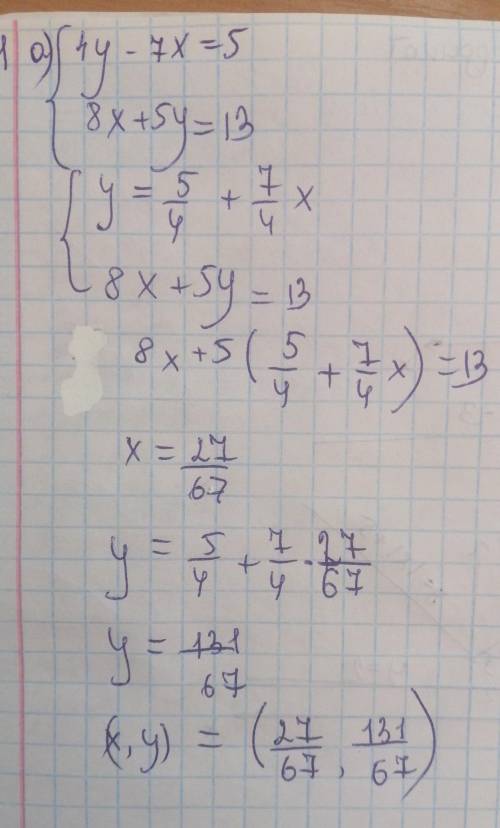 1 а) { 4y - 7x = 5
8x + 5y = 13
{ y = 5/4 + 7/4 x
8x + 5y = 13
8x + 5 ( 5/4 + 7/4 x ) = 13
x = 27/67
y = 5/4 + 7/4 · 27/67
y = 131/67
(x, y) = ( 27/67 , 131/67 )